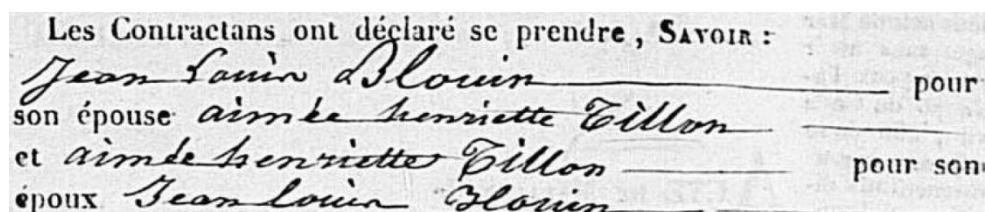 Les Contractans ont déclaré se prendre, SAVOIR :
Jean Louis Blouin pour
son épouse aimée henriette Tillon
et aimée henriette Tillon pour son
époux Jean Louis Blouin